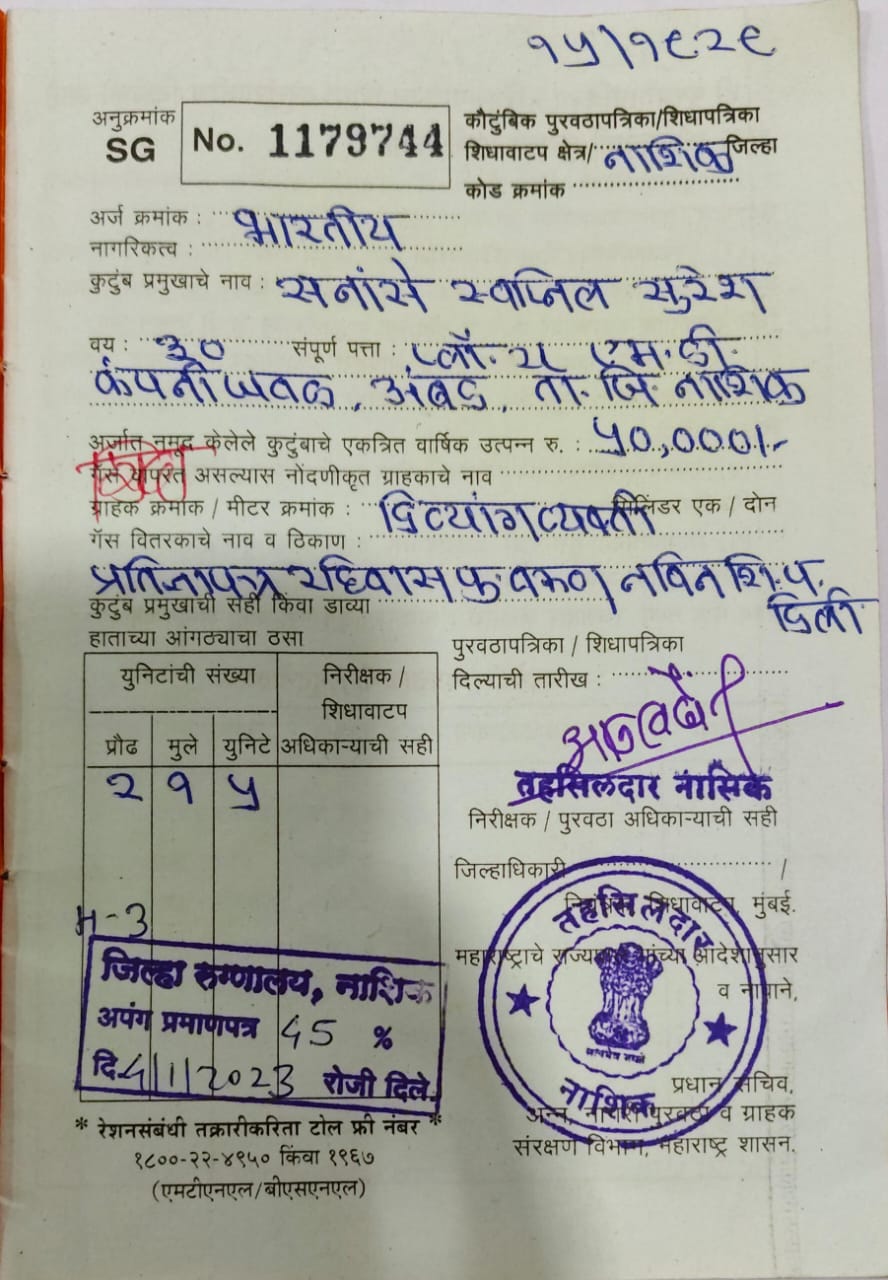 १५/१९२९
अनुक्रमांक
SG
No. 1179744
कौटुंबिक पुरवठापत्रिका/शिधापत्रिका
शिधावाटप क्षेत्र/ नाशिक जिल्हा
कोड क्रमांक
अर्ज क्रमांक :
नागरिकत्व : भारतीय
कुटुंब प्रमुखाचे नाव : सनांसे स्वप्निल सुरेश
वय : ३० संपूर्ण पत्ता : प्लॉ. य एम. डी.
कंपनीजवळ, अंबड, ता. जि. नाशिक
अर्जात नमूद केलेले कुटुंबाचे एकत्रित वार्षिक उत्पन्न रु. : ५०,०००/-
गॅस वापरत असल्यास नोंदणीकृत ग्राहकाचे नाव
ग्राहक क्रमांक / मीटर क्रमांक : दिव्यांग व्यक्ती सिलिंडर एक / दोन
गॅस वितरकाचे नाव व ठिकाण :
प्रतिज्ञापत्र रहिवास पु. वरुन नविन शि. प.
दिली
कुटुंब प्रमुखाची सही किंवा डाव्या
हाताच्या आंगठ्याचा ठसा
युनिटांची संख्या
निरीक्षक /
शिधावाटप
अधिकाऱ्याची सही
प्रौढ मुले युनिटे
२ १ ५
म-३
जिल्हा रुग्णालय, नाशिक
अपंग प्रमाणपत्र 45 %
दि. 4/1/2023 रोजी दिले.
पुरवठापत्रिका / शिधापत्रिका
दिल्याची तारीख :
तहसिलदार नासिक
निरीक्षक / पुरवठा अधिकाऱ्याची सही
जिल्हाधिकारी /
शिधावाटप, मुंबई.
महाराष्ट्राचे राज्यपाल यांच्या आदेशानुसार
व नावाने,
तहसिलदार
नाशिक
प्रधान सचिव,
अन्न, नागरी पुरवठा व ग्राहक
संरक्षण विभाग, महाराष्ट्र शासन.
* रेशनसंबंधी तक्रारीकरिता टोल फ्री नंबर *
१८००-२२-४९५० किंवा १९६७
(एमटीएनएल/बीएसएनएल)